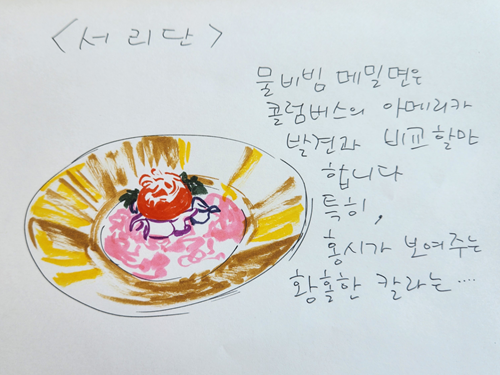 <서리단>
물비빔 메밀면은
콜럼버스의 아메리카
발견과 비교할만
합니다
특히,
홍시가 보여주는
황홀한 칼라는....